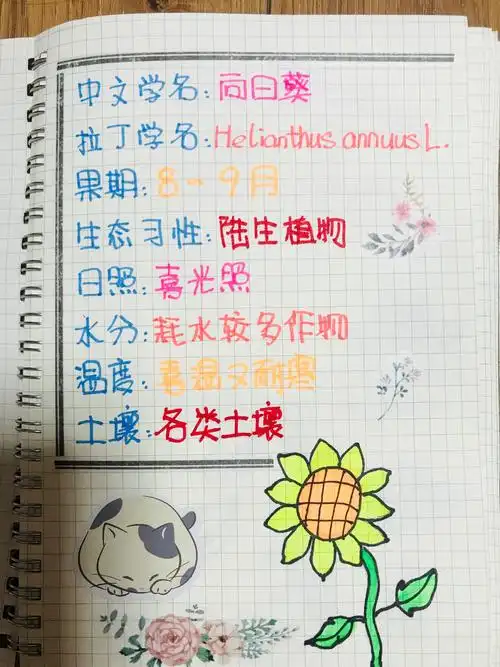 中文学名:向日葵
拉丁学名:Helianthus annuus L.
果期:8-9月
生态习性:陆生植物
日照:喜光照
水分:耗水较多作物
温度:喜温又耐寒
土壤:各类土壤